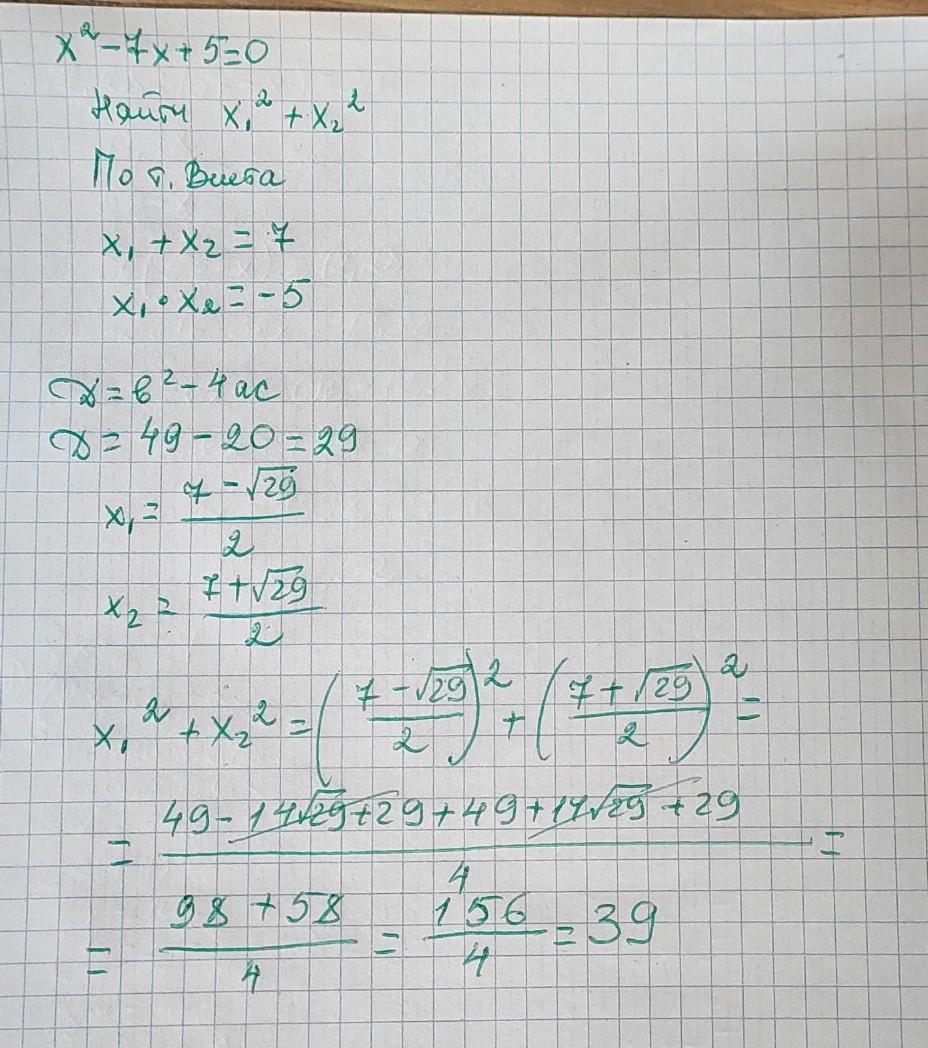 x² - 7x + 5 = 0
Найти x₁² + x₂²
По т. Виета
x₁ + x₂ = 7
x₁ · x₂ = -5
D = b² - 4ac
D = 49 - 20 = 29
x₁ = (7 - √29)/2
x₂ = (7 + √29)/2
x₁² + x₂² = ((7 - √29)/2)² + ((7 + √29)/2)² =
= (49 - 14√29 + 29 + 49 + 14√29 + 29)/4 =
= (98 + 58)/4 = 156/4 = 39